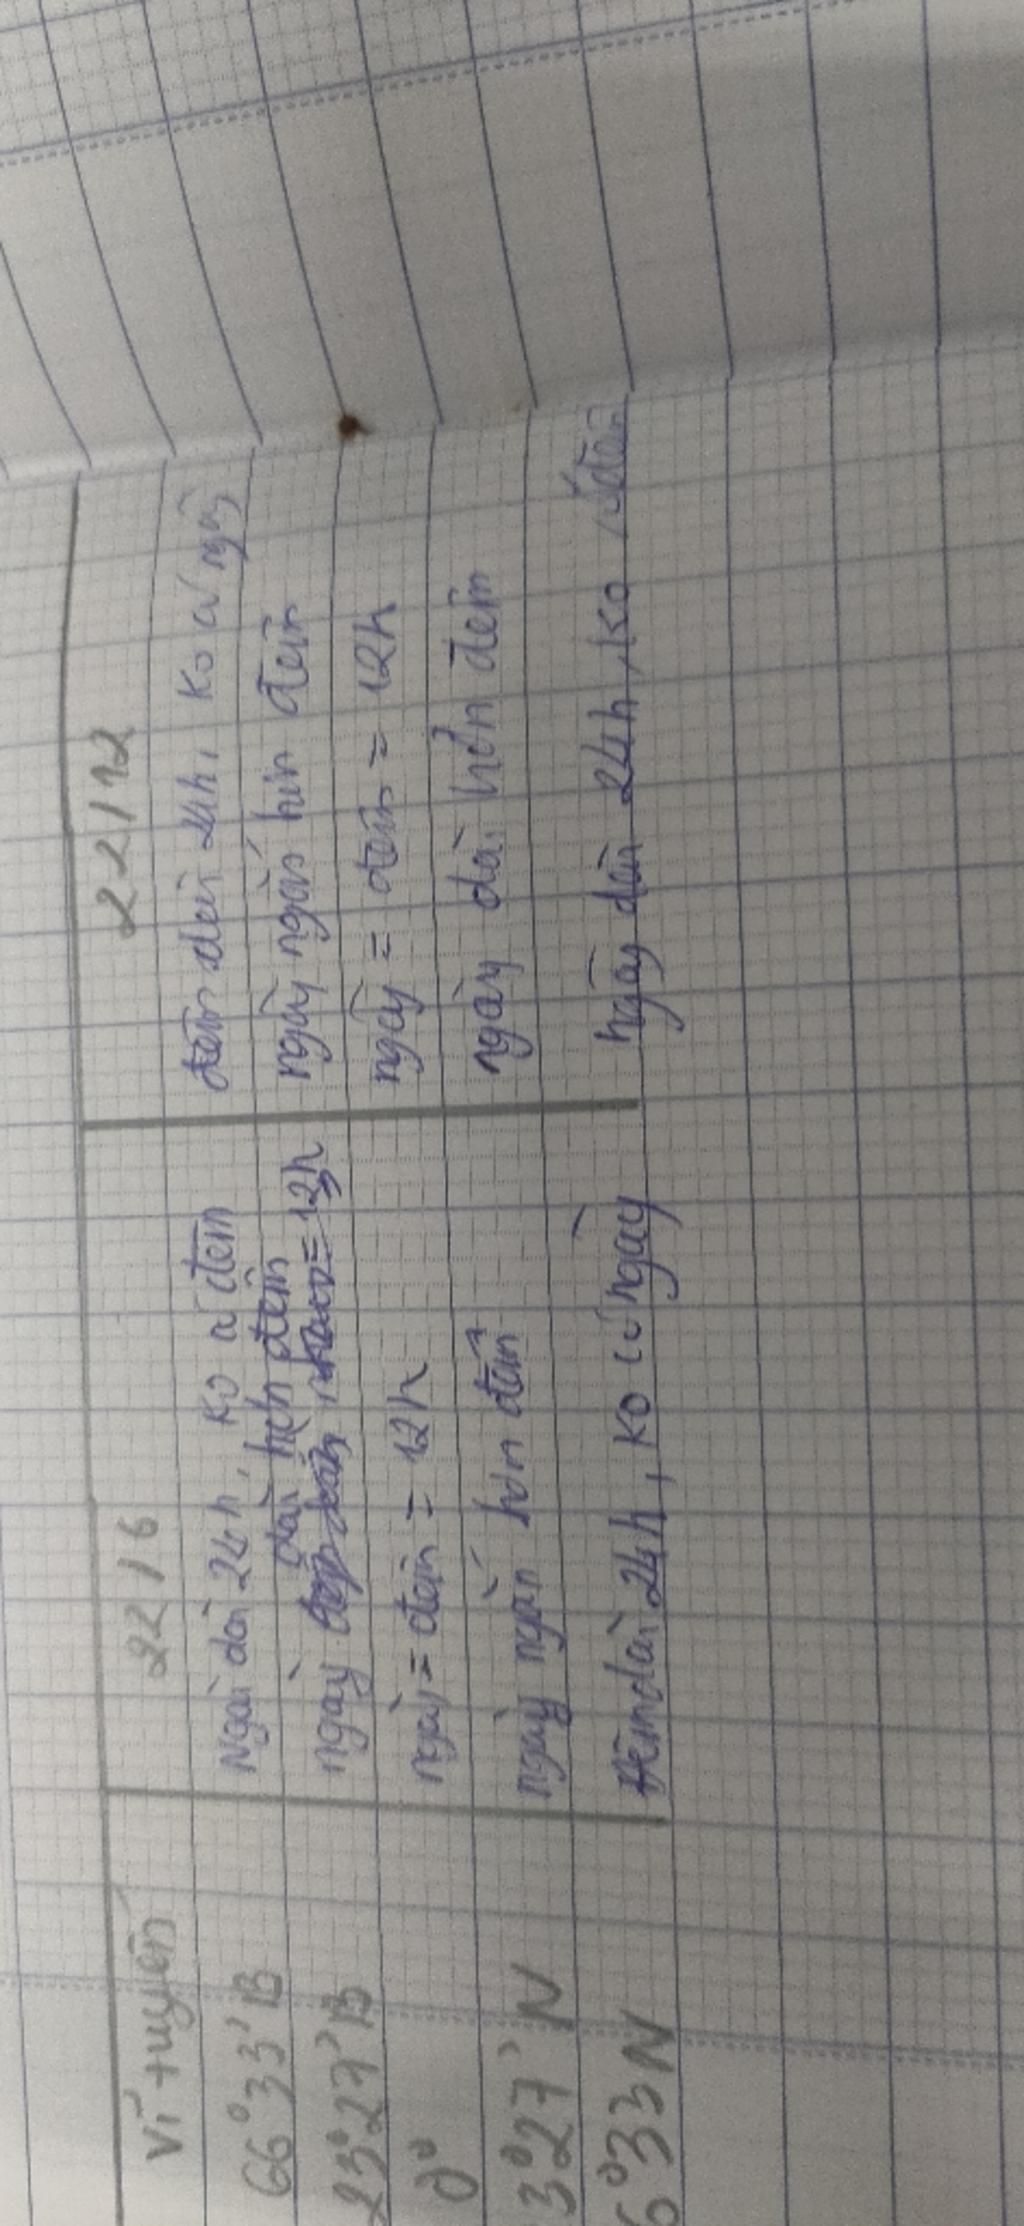 Vĩ tuyến 22/6 22/12
66°33'B Ngài dài 24h, ko có đêm đêm dài 24h, ko có ngày
dài hơn đêm
23°27'B ngày = 12h ngày ngắn hơn đêm
0° ngày = đêm = 12h ngày = đêm = 12h
3°27'N ngày ngắn hơn đêm ngày dài hơn đêm
6°33N Đêm dài 24h, ko có ngày ngày dài 24h, ko có đêm